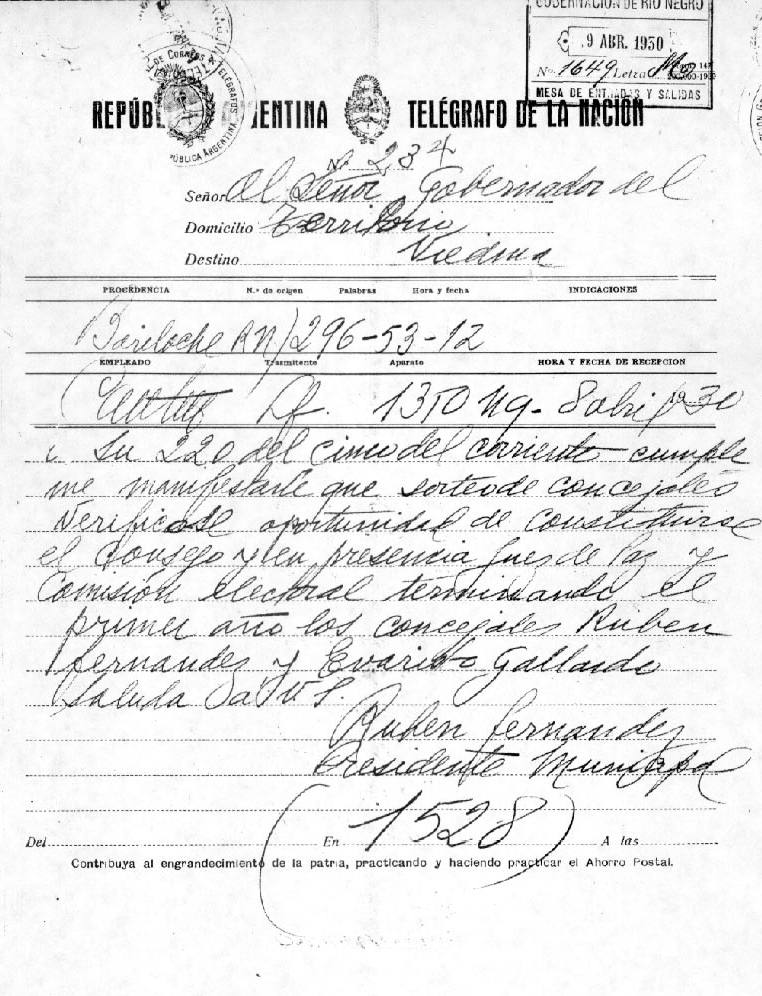 GOBERNACION DE RIO NEGRO
9 ABR. 1930
Nº 1649 Letra M
MESA DE ENTRADAS Y SALIDAS
DE CORREOS Y TELÉGRAFOS
REPÚBLICA ARGENTINA
REPÚB ENTINA TELÉGRAFO DE LA NACIÓN
Nº 234
Señor Al Señor Gobernador del
Domicilio Territorio
Destino Viedma
PROCEDENCIA N.º de origen Palabras Hora y fecha INDICACIONES
Bariloche RN) 296-53-12
EMPLEADO Trasmitente Aparato HORA Y FECHA DE RECEPCION
1350 8 abril 1930
Su 220 del cinco del corriente cumple
me manifestarle que sorteo de concejales
verificose oportunidad de constituirse
el Consejo y en presencia Juez de Paz y
Comisión electoral terminando el
primer año los concejales Ruben
Fernandez y Evaristo Gallardo
Saluda a V S.
Ruben Fernandez
Presidente Municipal
(1528)
Del En A las
Contribuya al engrandecimiento de la patria, practicando y haciendo practicar el Ahorro Postal.